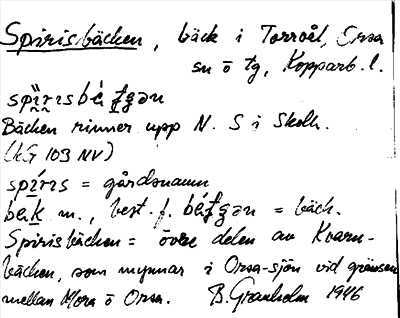 Spirisbäcken, bäck i Torrvål, Orsa
sn ö tg, Kopparb. l.
spi̤ri̤sbé̱ʄgən
Bäcken rinner upp N. S i Skolh.
(kG 103 NV)
spírɪs = gårdsnamn
be̱k m., best. f. bé̱ʄgən = bäck.
Spirisbäcken = övre delen av Kvarn-
bäcken, som mynnar i Orsa-sjön vid gränsen
mellan Mora ö Orsa. B. Granholm 1946